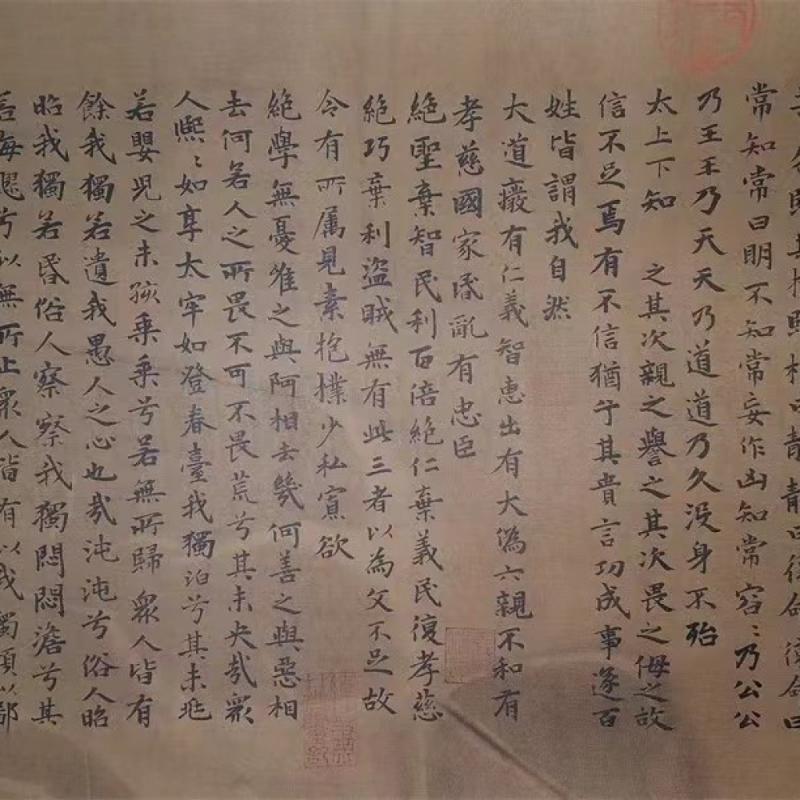 各歸其根歸根曰靜靜曰復命復命曰
常知常曰明不知常妄作凶知常容〻乃公公
乃王王乃天天乃道道乃久沒身不殆
太上下知 之其次親之譽之其次畏之侮之故
信不足焉有不信猶乎其貴言功成事遂百
姓皆謂我自然
大道癈有仁義智惠出有大偽六親不和有
孝慈國家昏亂有忠臣
絕聖棄智民利百倍絕仁棄義民復孝慈
絕巧棄利盜賊無有此三者以為文不足故
令有所属見素抱樸少私寡欲
絕學無憂唯之與阿相去幾何善之與惡相
去何若人之所畏不可不畏荒兮其未央哉衆
人熙〻如享太牢如登春臺我獨泊兮其未兆
若嬰兒之未孩乘乘兮若無所歸衆人皆有
餘我獨若遺我愚人之心也哉沌沌兮俗人昭
昭我獨若昏俗人察察我獨悶悶澹兮其
若海飂兮似無所止衆人皆有以我獨頑似鄙